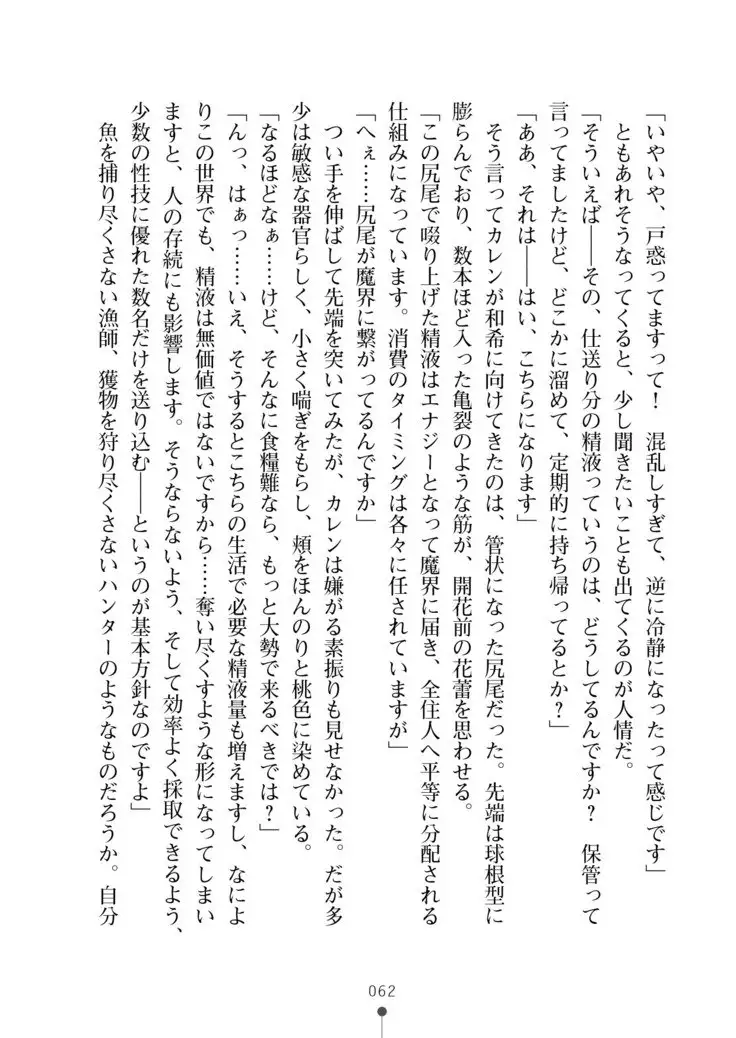 「いやいや、戸惑ってますって！　混乱しすぎて、逆に冷静になったって感じです」
　ともあれそうなってくると、少し聞きたいことも出てくるのが人情だ。
「そういえば――その、仕送り分の精液っていうのは、どうしてるんですか？　保管って
言ってましたけど、どこかに溜めて、定期的に持ち帰ってるとか？」
「ああ、それは――はい、こちらになります」
　そう言ってカレンが和希に向けてきたのは、管状になった尻尾だった。先端は球根型に
膨らんでおり、数本ほど入った亀裂のような筋が、開花前の花蕾を思わせる。
「この尻尾で啜り上げた精液はエナジーとなって魔界に届き、全住人へ平等に分配される
仕組みになっています。消費のタイミングは各々に任されていますが」
「へぇ……尻尾が魔界に繋がってるんですか」
　つい手を伸ばして先端を突いてみたが、カレンは嫌がる素振りも見せなかった。だが多
少は敏感な器官らしく、小さく喘ぎをもらし、頬をほんのりと桃色に染めている。
「なるほどなぁ……けど、そんなに食糧難なら、もっと大勢で来るべきでは？」
「んっ、はぁっ……いえ、そうするとこちらの生活で必要な精液量も増えますし、なによ
りこの世界でも、精液は無価値ではないですから……奪い尽くすような形になってしまい
ますと、人の存続にも影響します。そうならないよう、そして効率よく採取できるよう、
少数の性技に優れた数名だけを送り込む――というのが基本方針なのですよ」
　魚を捕り尽くさない漁師、獲物を狩り尽くさないハンターのようなものだろうか。自分
062